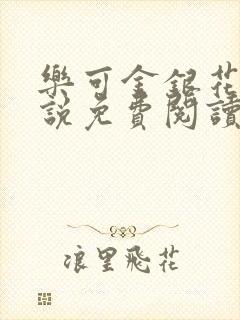 樂可金銀花
說免費閱讀
浪里飛花